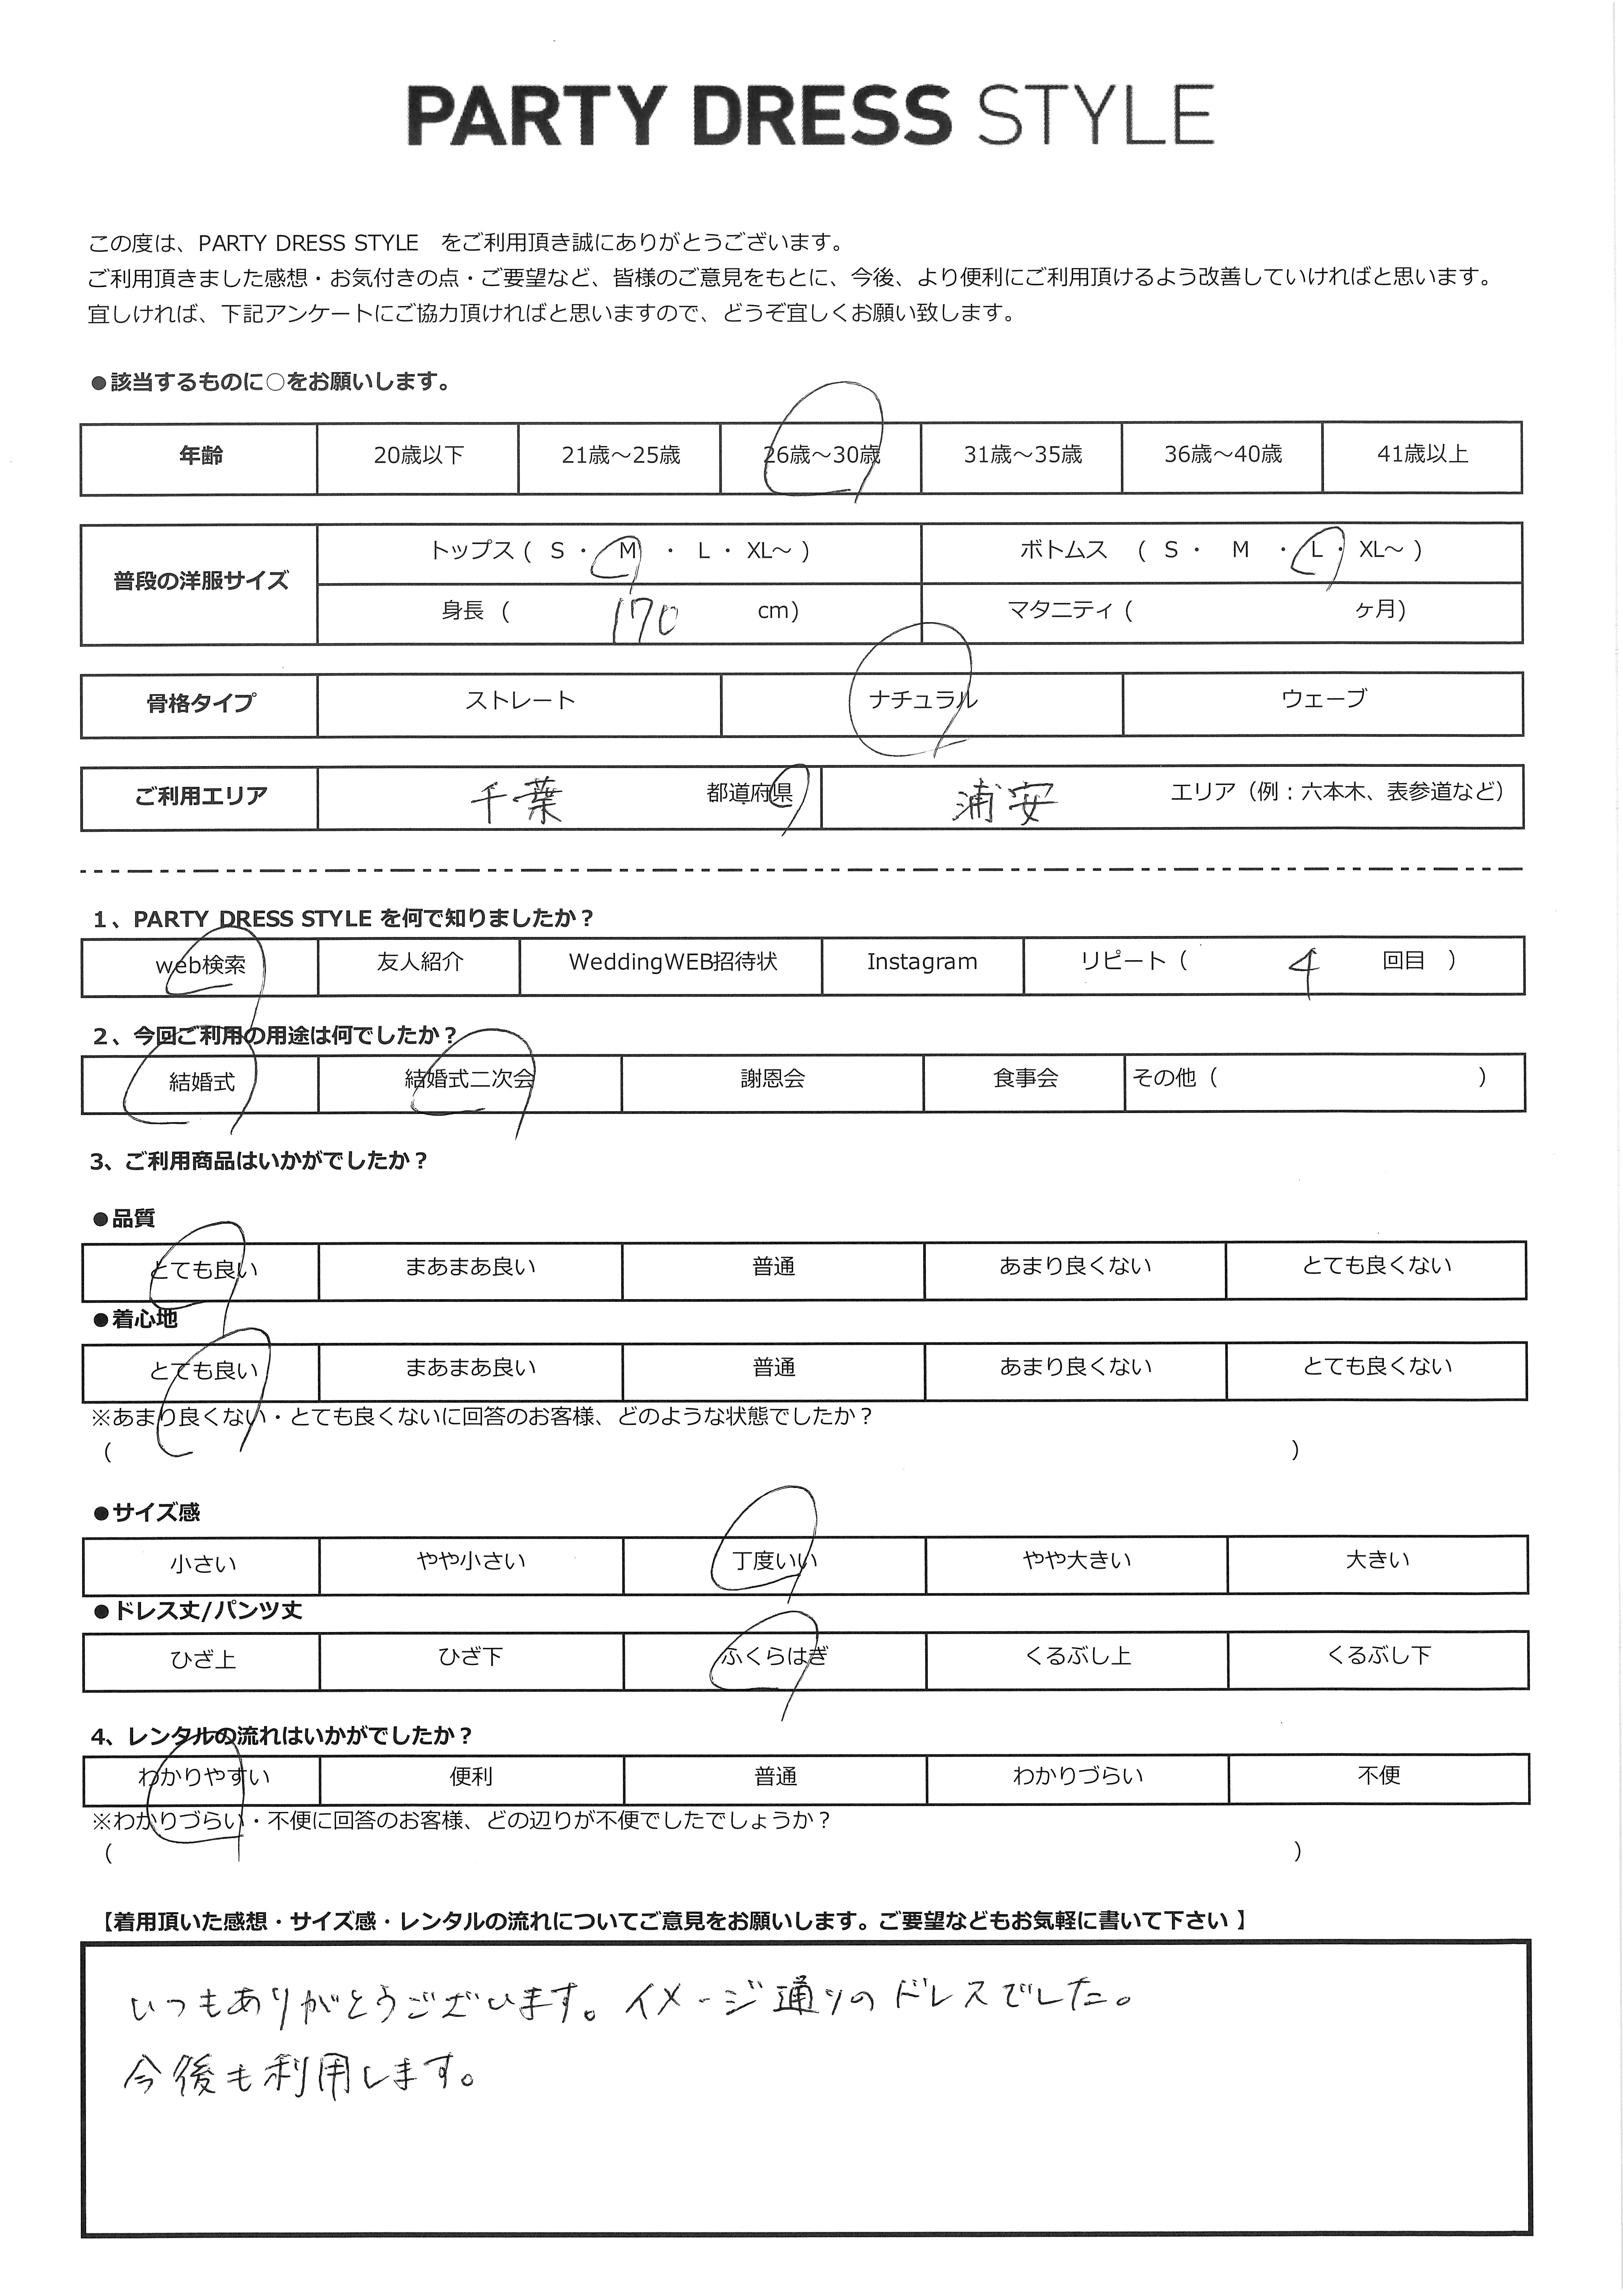 PARTY DRESS STYLE
この度は、PARTY DRESS STYLE　をご利用頂き誠にありがとうございます。
ご利用頂きました感想・お気付きの点・ご要望など、皆様のご意見をもとに、今後、より便利にご利用頂けるよう改善していければと思います。
宜しければ、下記アンケートにご協力頂ければと思いますので、どうぞ宜しくお願い致します。
●該当するものに○をお願いします。
年齢 20歳以下 21歳～25歳 26歳～30歳 31歳～35歳 36歳～40歳 41歳以上
普段の洋服サイズ
トップス ( S ・ M ・ L ・ XL～ ) ボトムス ( S ・ M ・ L ・ XL～ )
身長 ( 170 cm) マタニティ ( ヶ月)
骨格タイプ ストレート ナチュラル ウェーブ
ご利用エリア 千葉 都道府県 浦安 エリア（例：六本木、表参道など）
1、PARTY DRESS STYLE を何で知りましたか？
web検索 友人紹介 WeddingWEB招待状 Instagram リピート（ 4 回目 ）
2、今回ご利用の用途は何でしたか？
結婚式 結婚式二次会 謝恩会 食事会 その他（ ）
3、ご利用商品はいかがでしたか？
●品質
とても良い まあまあ良い 普通 あまり良くない とても良くない
●着心地
とても良い まあまあ良い 普通 あまり良くない とても良くない
※あまり良くない・とても良くないに回答のお客様、どのような状態でしたか？
（ ）
●サイズ感
小さい やや小さい 丁度いい やや大きい 大きい
●ドレス丈/パンツ丈
ひざ上 ひざ下 ふくらはぎ くるぶし上 くるぶし下
4、レンタルの流れはいかがでしたか？
わかりやすい 便利 普通 わかりづらい 不便
※わかりづらい・不便に回答のお客様、どの辺りが不便でしたでしょうか？
（ ）
【着用頂いた感想・サイズ感・レンタルの流れについてご意見をお願いします。ご要望などもお気軽に書いて下さい 】
いつもありがとうございます。イメージ通りのドレスでした。
今後も利用します。